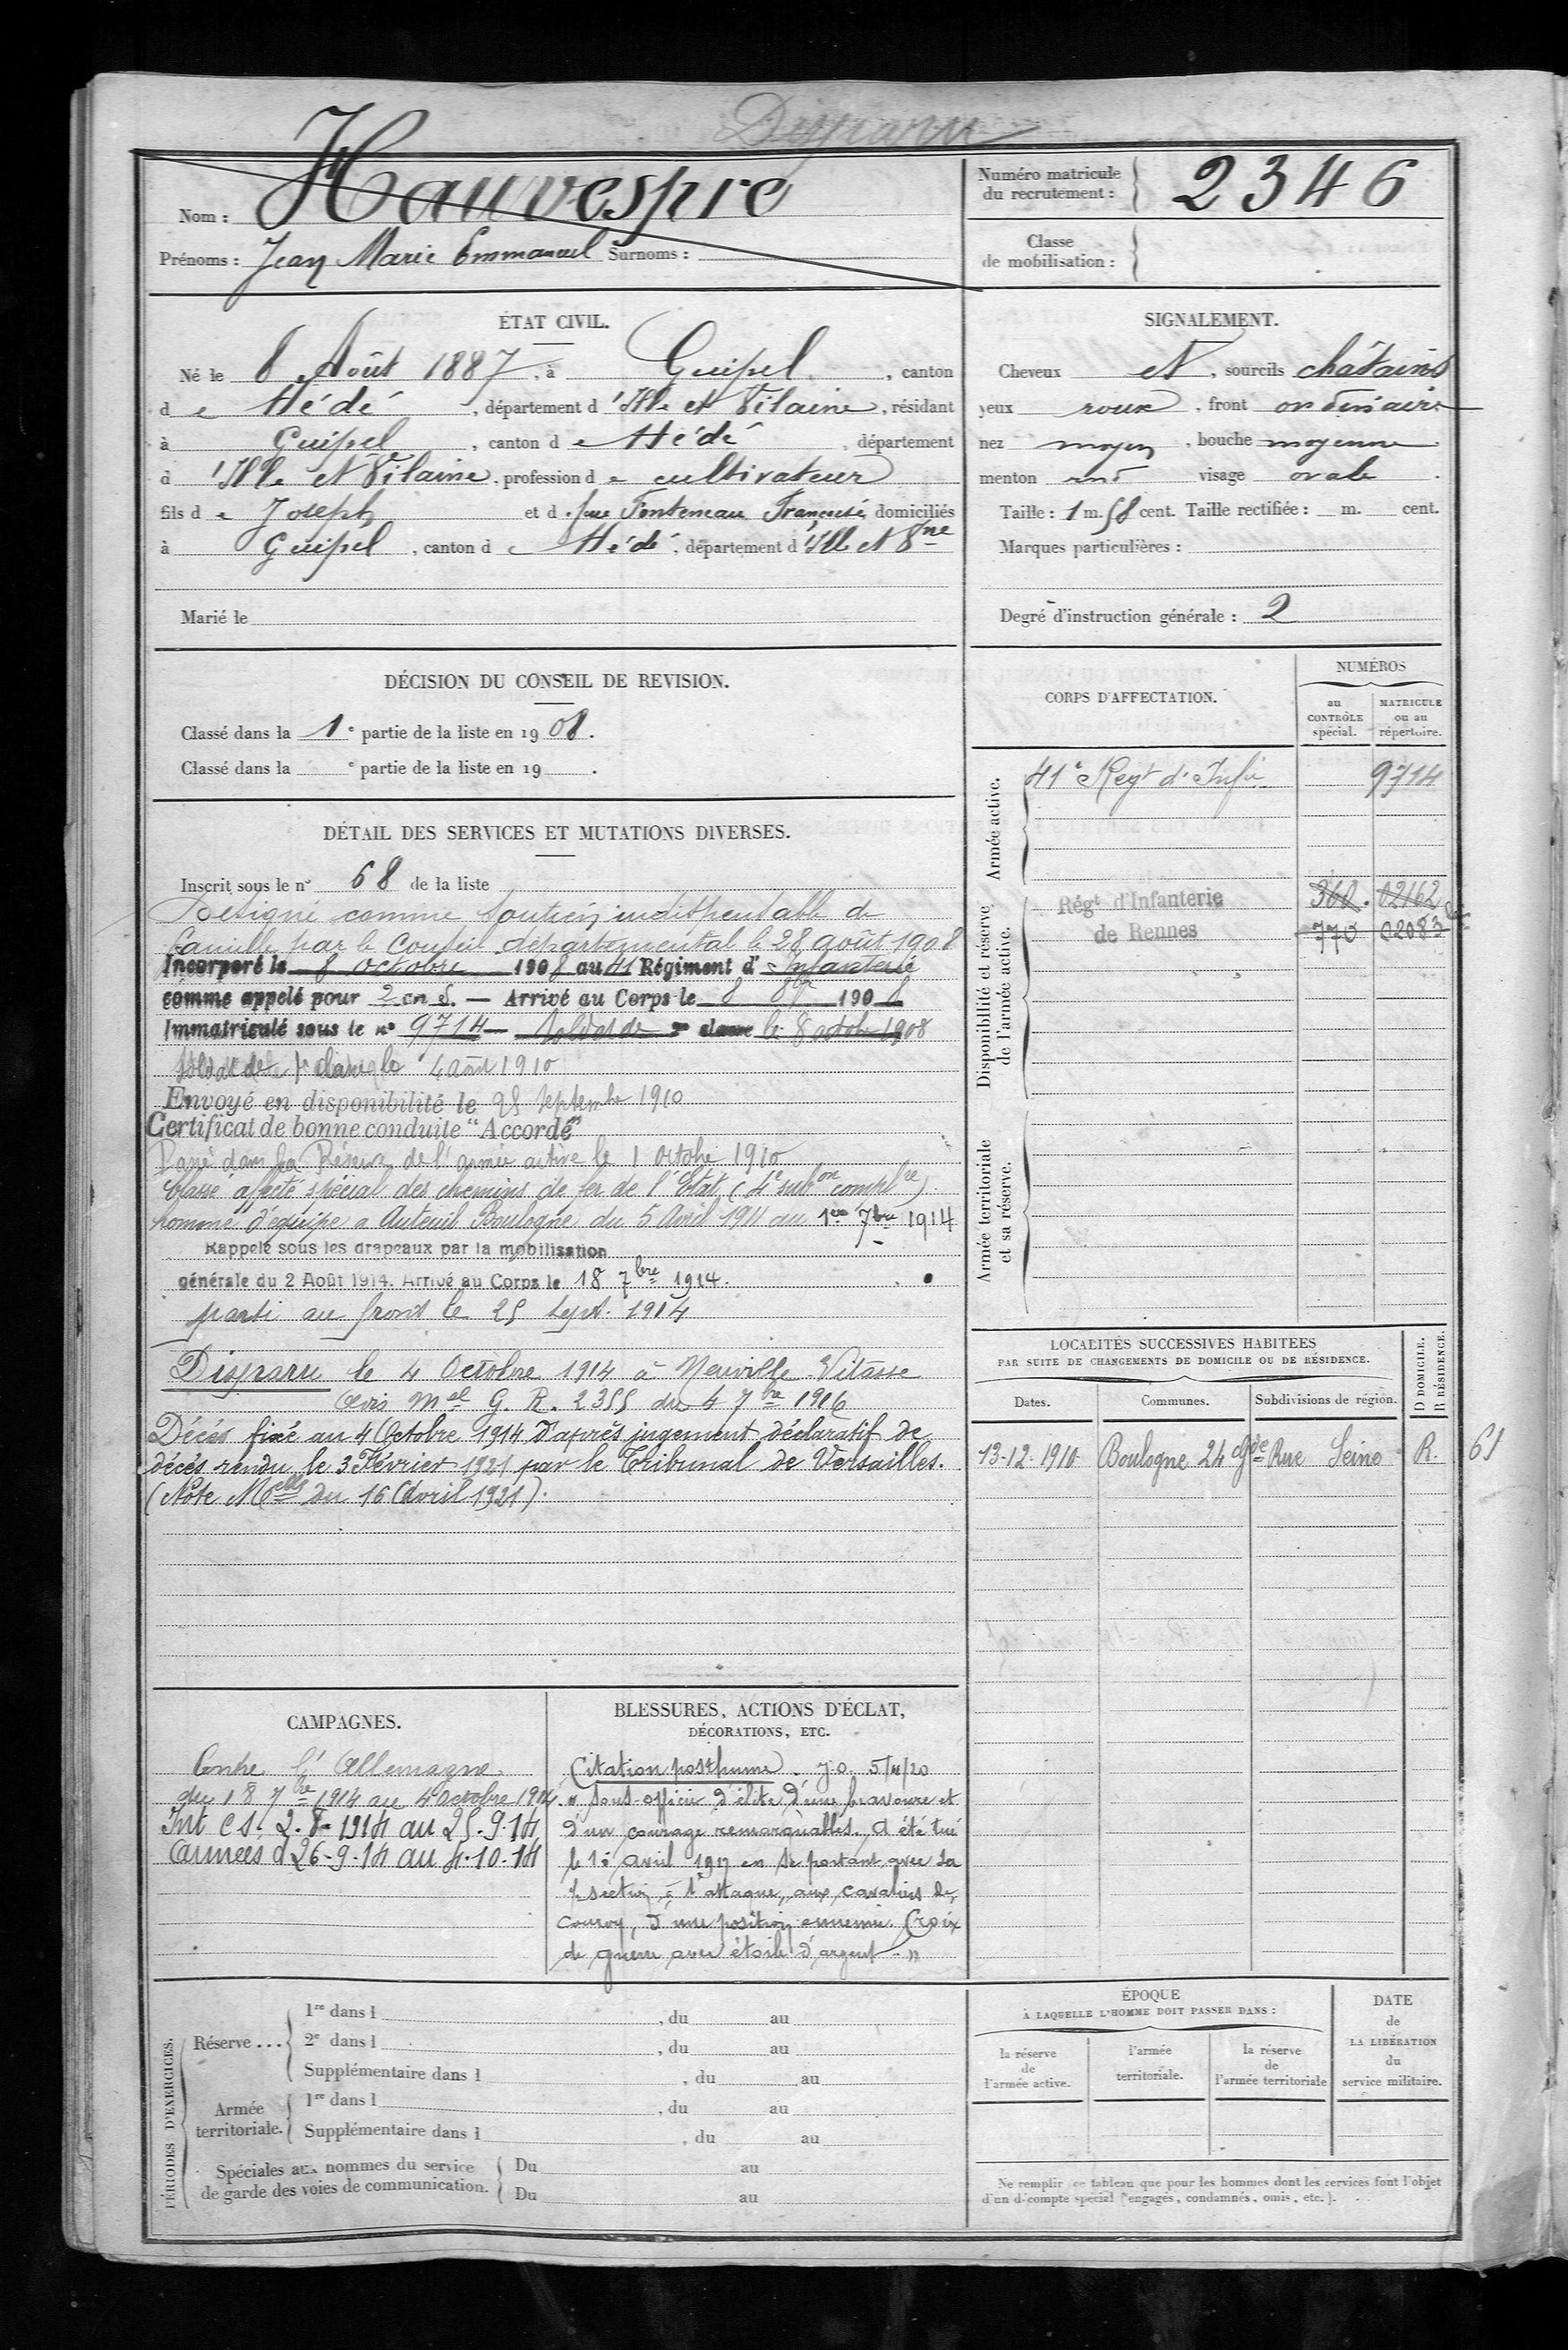 Disparu
Nom : Hauvespre
Prénoms : Jean Marie Emmanuel Surnoms :
Numéro matricule du recrutement : 2346
Classe de mobilisation :
ÉTAT CIVIL.
Né le 8 Août 1887, à Guipel, canton
de Hédé, département d'Ille et Vilaine, résidant
à Guipel, canton de Hédé, département
d'Ille et Vilaine, profession de cultivateur
fils de Joseph et d feue Fonteneau Françoise, domiciliés
à Guipel, canton de Hédé, département d'Ille et Vne
Marié le
SIGNALEMENT.
Cheveux et, sourcils châtains
yeux roux, front ordinaire
nez moyen, bouche moyenne
menton rond visage ovale.
Taille : 1 m. 58 cent. Taille rectifiée : m. cent.
Marques particulières :
Degré d'instruction générale : 2
DÉCISION DU CONSEIL DE REVISION.
Classé dans la 1e partie de la liste en 1908.
Classé dans la e partie de la liste en 19 .
DÉTAIL DES SERVICES ET MUTATIONS DIVERSES.
Inscrit sous le n° 68 de la liste
Désigné comme soutien indispensable de
famille par le Conseil départemental le 28 août 1908
Incorporé le 8 octobre 1908 au 41 Régiment d'Infanterie
comme appelé pour 2 ans. — Arrivé au Corps le 8 8bre 1908
Immatriculé sous le n° 9714 — Soldat de 2e classe le 8 octobre 1908
Soldat de 1e classe le 4 août 1910
Envoyé en disponibilité le 25 septembre 1910
Certificat de bonne conduite "Accordé"
Passé dans la Réserve de l'armée active le 1 octobre 1910
Classé affecté spécial des chemins de fer de l'Etat (4e subon complre)
homme d'équipe a Auteuil Boulogne du 5 Avril 1911 au 1er 7bre 1914
Rappelé sous les drapeaux par la mobilisation
générale du 2 Août 1914. Arrivé au Corps le 18 7bre 1914.
parti au front le 25 sept. 1914
Disparu le 4 Octobre 1914 à Neuville-Vitasse
Avis Mel G. R. 2355 du 4 7bre 1916
Décès fixé au 4 Octobre 1914 d'après jugement déclaratif de
décès rendu le 3 Février 1921 par le Tribunal de Versailles.
(Note Melle du 16 Avril 1921).
CORPS D'AFFECTATION.
NUMÉROS
au CONTRÔLE spécial.
MATRICULE ou au répertoire.
Armée active.
41e Regt d'Infie 9714
Disponibilité et réserve de l'armée active.
Régt d'Infanterie 360. 02162
de Rennes 770 02083
Armée territoriale et sa réserve.
LOCALITÉS SUCCESSIVES HABITÉES
PAR SUITE DE CHANGEMENTS DE DOMICILE OU DE RÉSIDENCE.
Dates. Communes. Subdivisions de région. D DOMICILE. R RÉSIDENCE.
13-12-1910 Boulogne 24 Gde Rue Seine R. 61
CAMPAGNES.
Contre l'Allemagne
du 18 7bre 1914 au 4 octobre 1914.
Int CS. 2.8-1914 au 25.9.14
Armées d 26-9-14 au 4.10.14
BLESSURES, ACTIONS D'ÉCLAT,
DÉCORATIONS, ETC.
Citation posthume. J.O. 5/11/20
« Sous-officier d'élite d'une bravoure et
d'un courage remarquables. A été tué
le 16 avril 1917 en se portant avec sa
½ section à l'attaque, aux cavaliers de
Courcy, d'une position ennemie. Croix
de guerre avec étoile d'argent. »
PÉRIODES D'EXERCICES.
Réserve ... 1re dans l , du au
2e dans l , du au
Supplémentaire dans l , du au
Armée territoriale. 1re dans l , du au
Supplémentaire dans l , du au
Spéciales aux hommes du service de garde des voies de communication. Du au
Du au
ÉPOQUE
À LAQUELLE L'HOMME DOIT PASSER DANS :
la réserve de l'armée active.
l'armée territoriale.
la réserve de l'armée territoriale
DATE de LA LIBÉRATION du service militaire.
Ne remplir ce tableau que pour les hommes dont les services font l'objet
d'un décompte spécial (engagés, condamnés, omis, etc.).